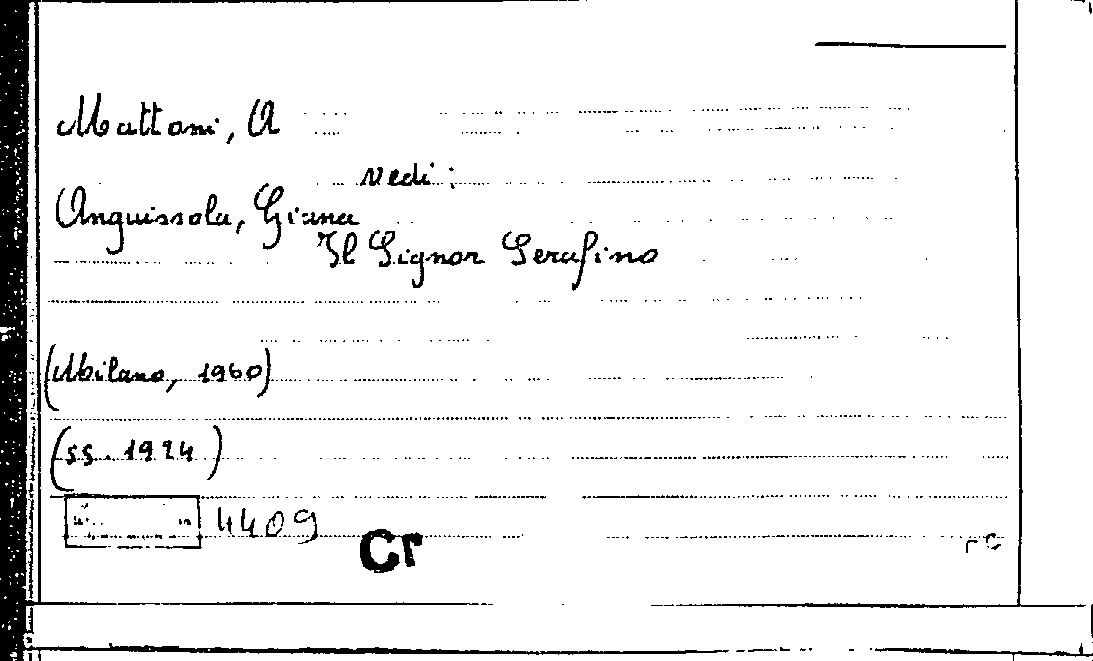 Mattoni, A
vedi:
Anguissola, Giana
Il Signor Serafino
(Milano, 1960)
(ss. 1924)
4409
Cr
rc